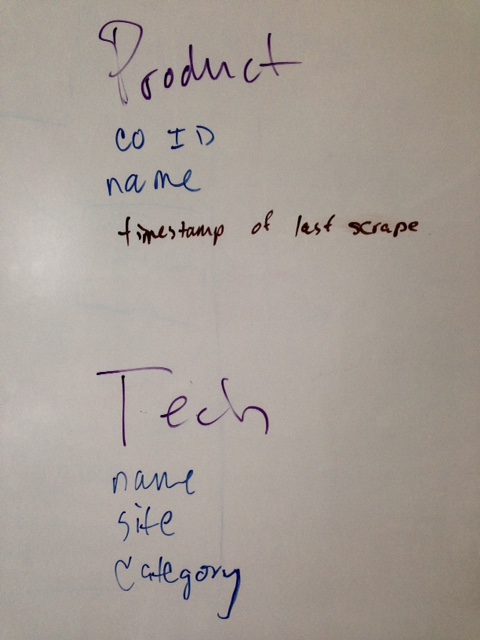 Product
CO ID
name
timestamp of last scrape
Tech
name
site
Category